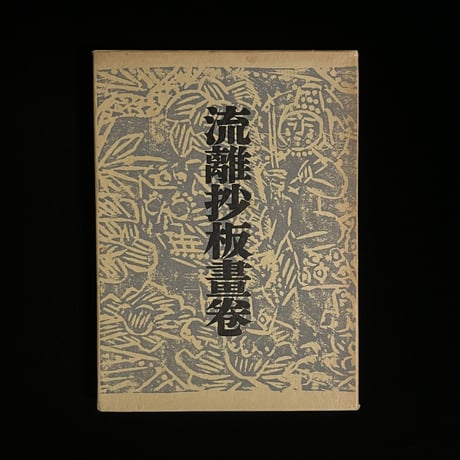 流離抄板畫巻